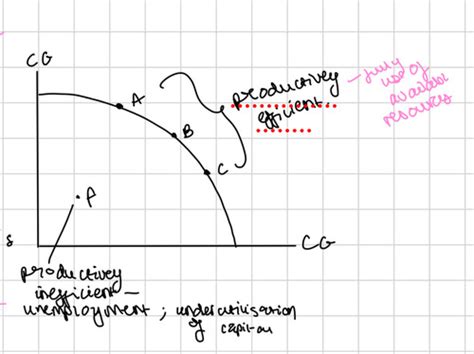 CG
A
B
C
productively
efficient
- fully
use of
available
resources
P
CG
s
productively
inefficient -
unemployment ; underutilisation
of capital